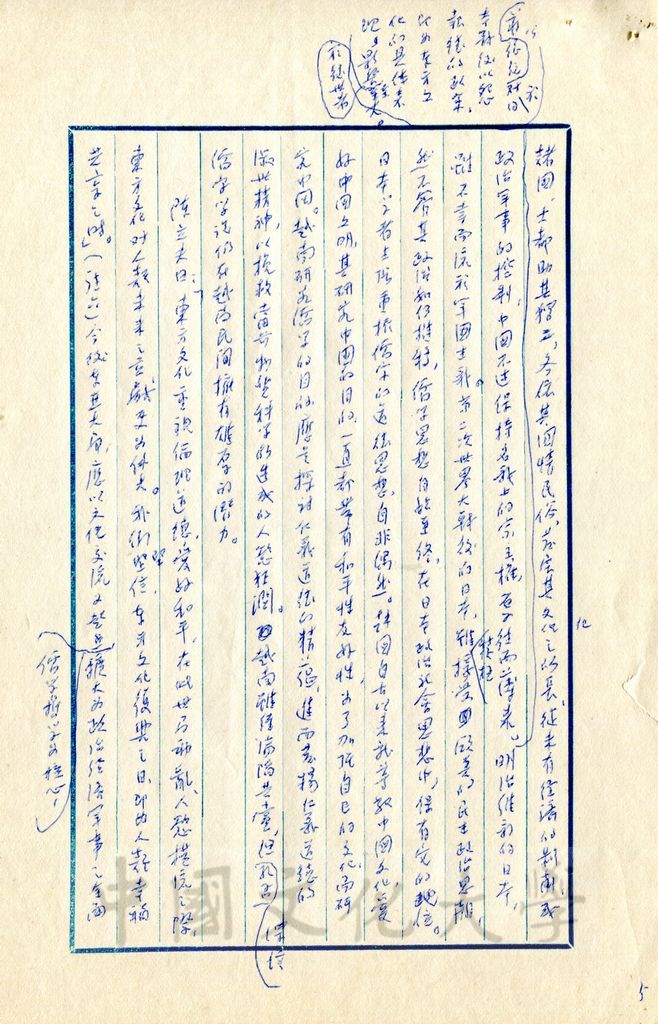 諸國，大都助其獨立，各依其國情民俗，發容其文化之所長，從未有經濟的剝削或
政治軍事的控制，中國不過保持名義上的宗主權，厚往而薄來。明治維新的日本，
雖不幸而流於軍國主義。第二次世界大戰後的日本，雖接受歐美的民主政治思潮，
然不管其政治如何推移，儒學思想自始至終，在日本政治社會思想中，保有它的地位。
日本學者主張重振儒家的道德思想，自非偶然。韓國自古以來就尊敬中國文化，愛
好中國文明，其研究中國的目的，一直都帶有和平性友好性，為了加強自己的文化而研
究中國。越南研究儒學的目的，應是探討仁義道德的精微，進而發揚仁義道德的
濟世精神，以挽救當前物質科學所造成的人慾狂瀾。越南雖經淪陷共黨，但
深信
儒家學說仍在越南民間擁有雄厚的潛力。
陳立夫曰：「東方文化重視倫理道德，愛好和平，在此世局動亂，人慾橫流之際，
東方文化對人類未來之貢獻更為偉大。我們堅信東方文化復興之日，即為人類幸福
共享之時。」（註六）今後東亞各國，應以文化交流為起點擴大為政治經濟軍事之全面
儒學哲學為核心
蔣總統對日
本執行以德報怨
的政策，
即為東方文
化的具體表
現，影響至大。
5
中國文化大學